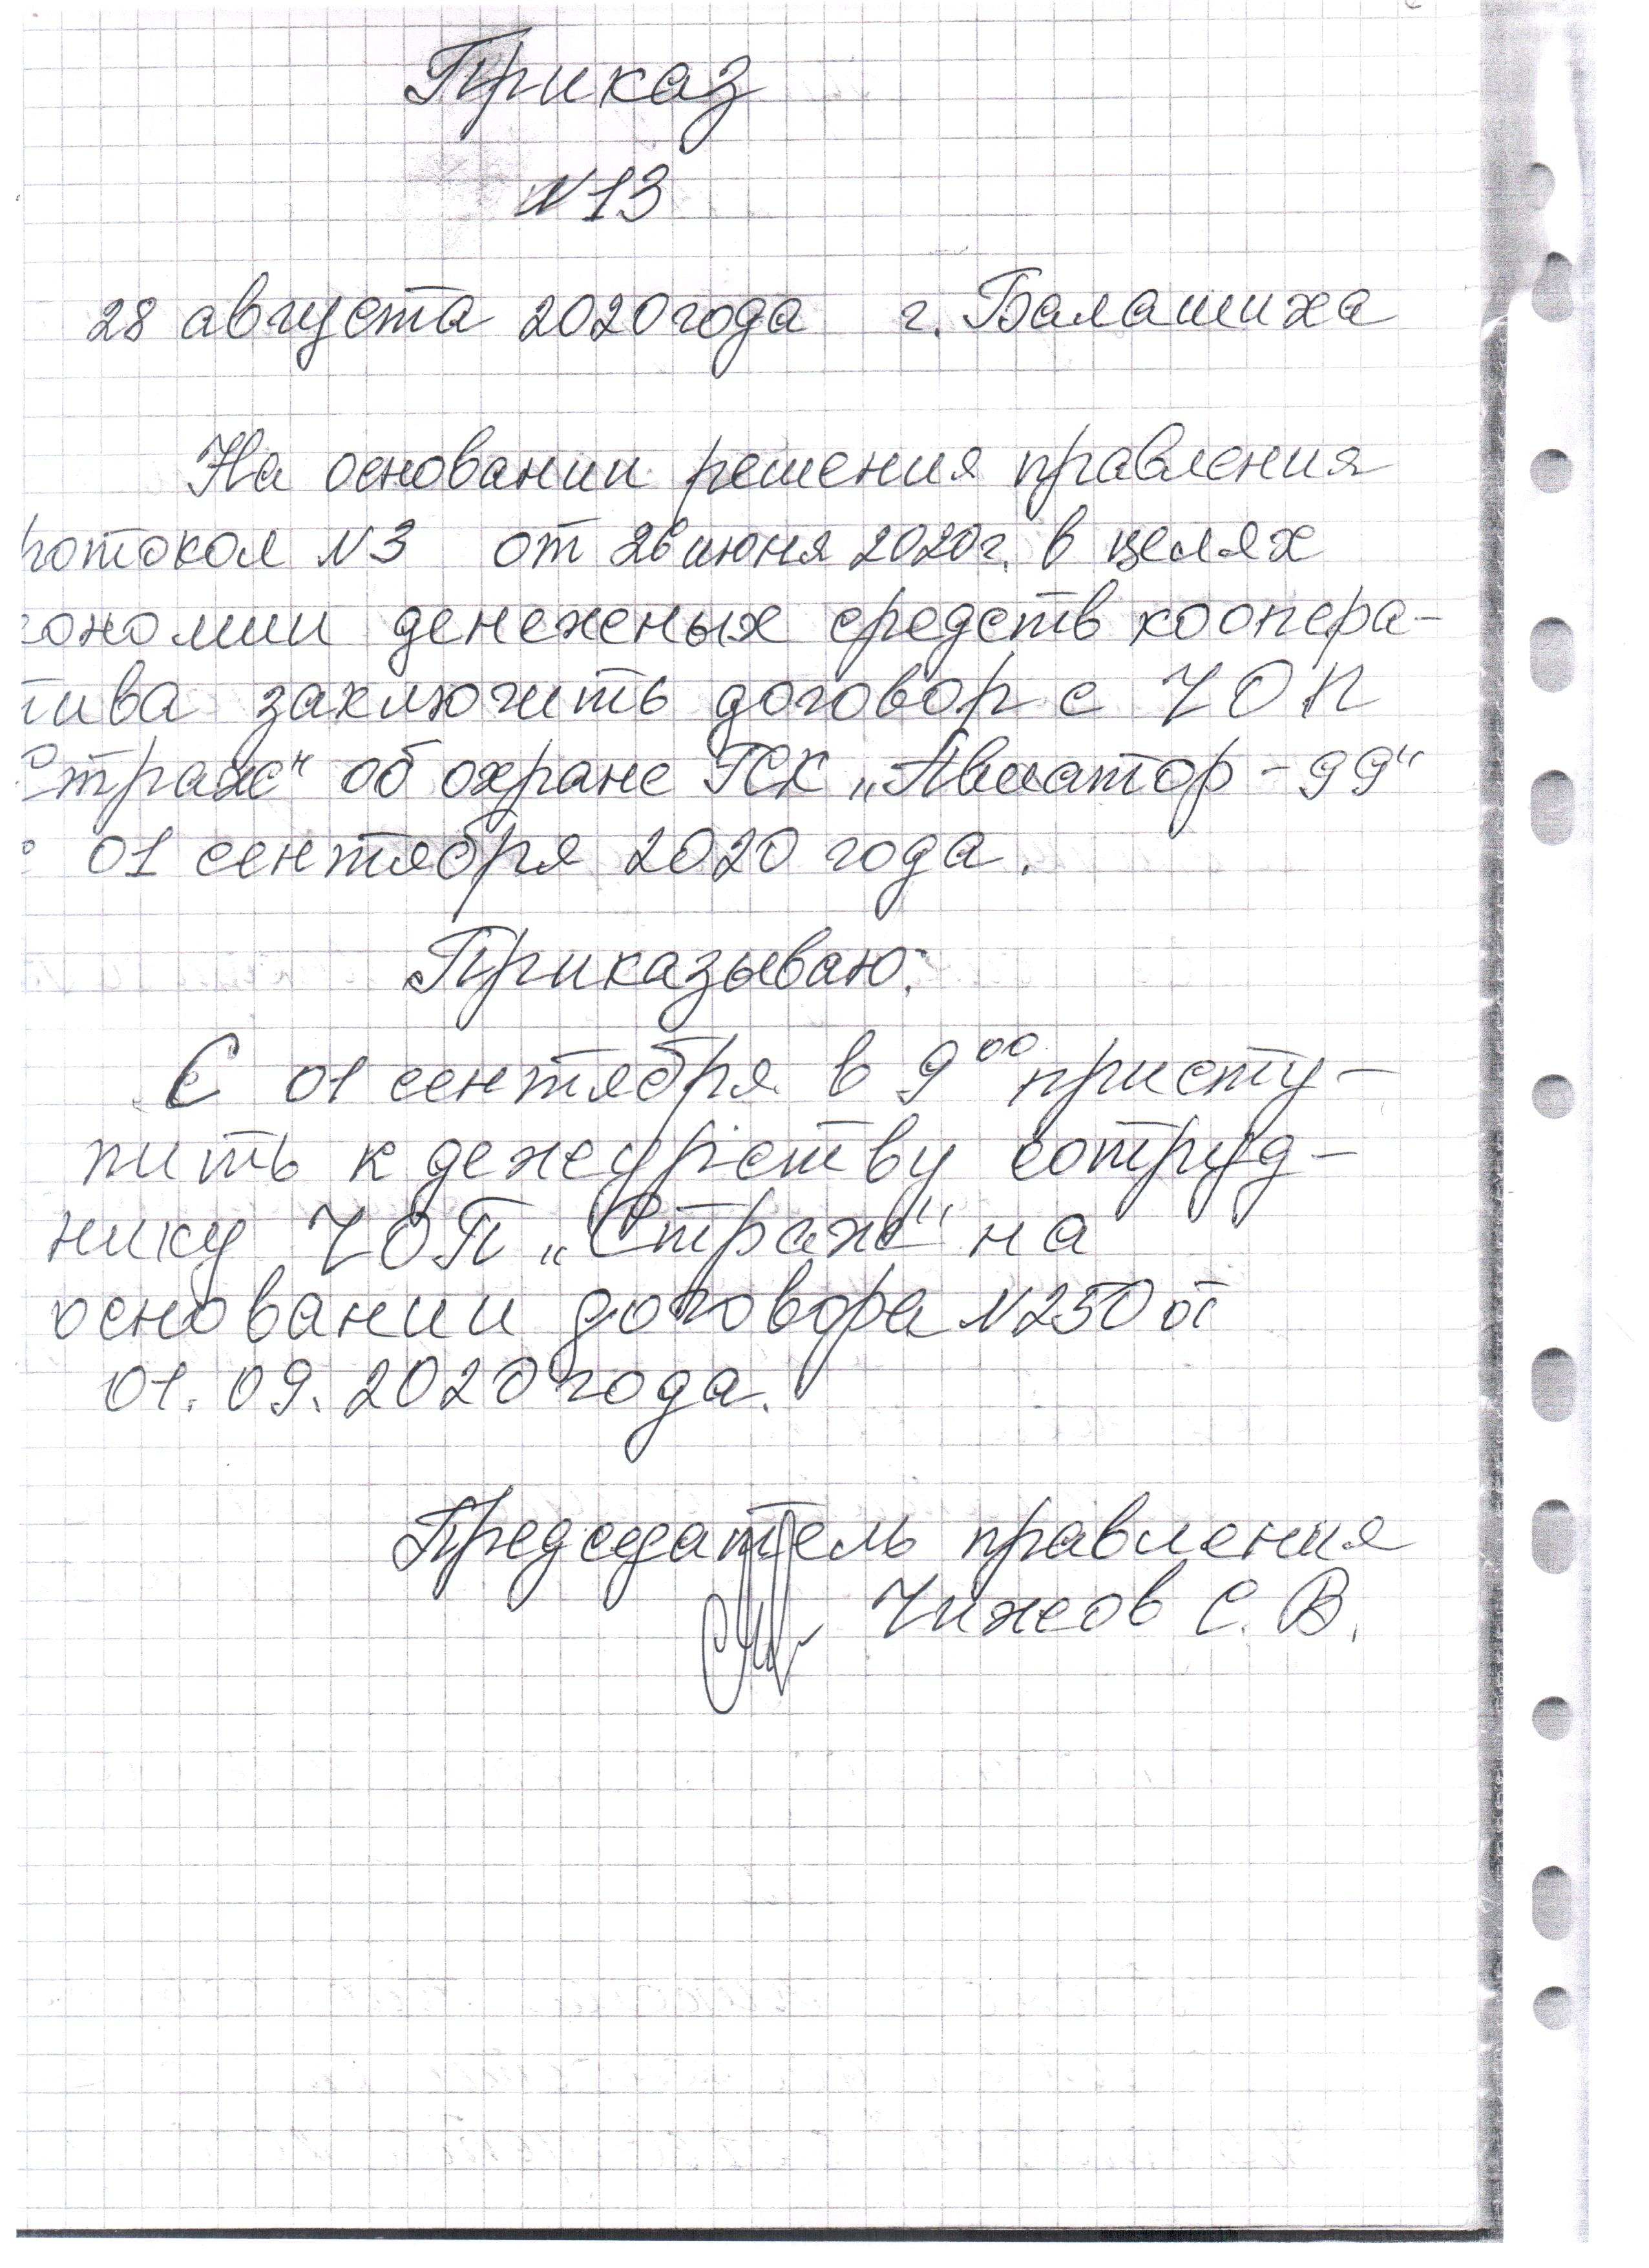 Приказ
N13
28 августа 2020 года г. Балашиха
На основании решения правления
ротокол N3 от 26 июня 2020 г. в целях
кономии денежных средств коопера-
тива заключить договор с ЧОП
Страж" об охране ГСК „Авиатор-99"
с 01 сентября 2020 года.
Приказываю:
С 01 сентября в 9 00 присту-
пить к дежурству сотруд-
нику ЧОП „Страж" на
основании договора N250 от
01.09.2020 года.
Председатель правления
Чижов С.В.